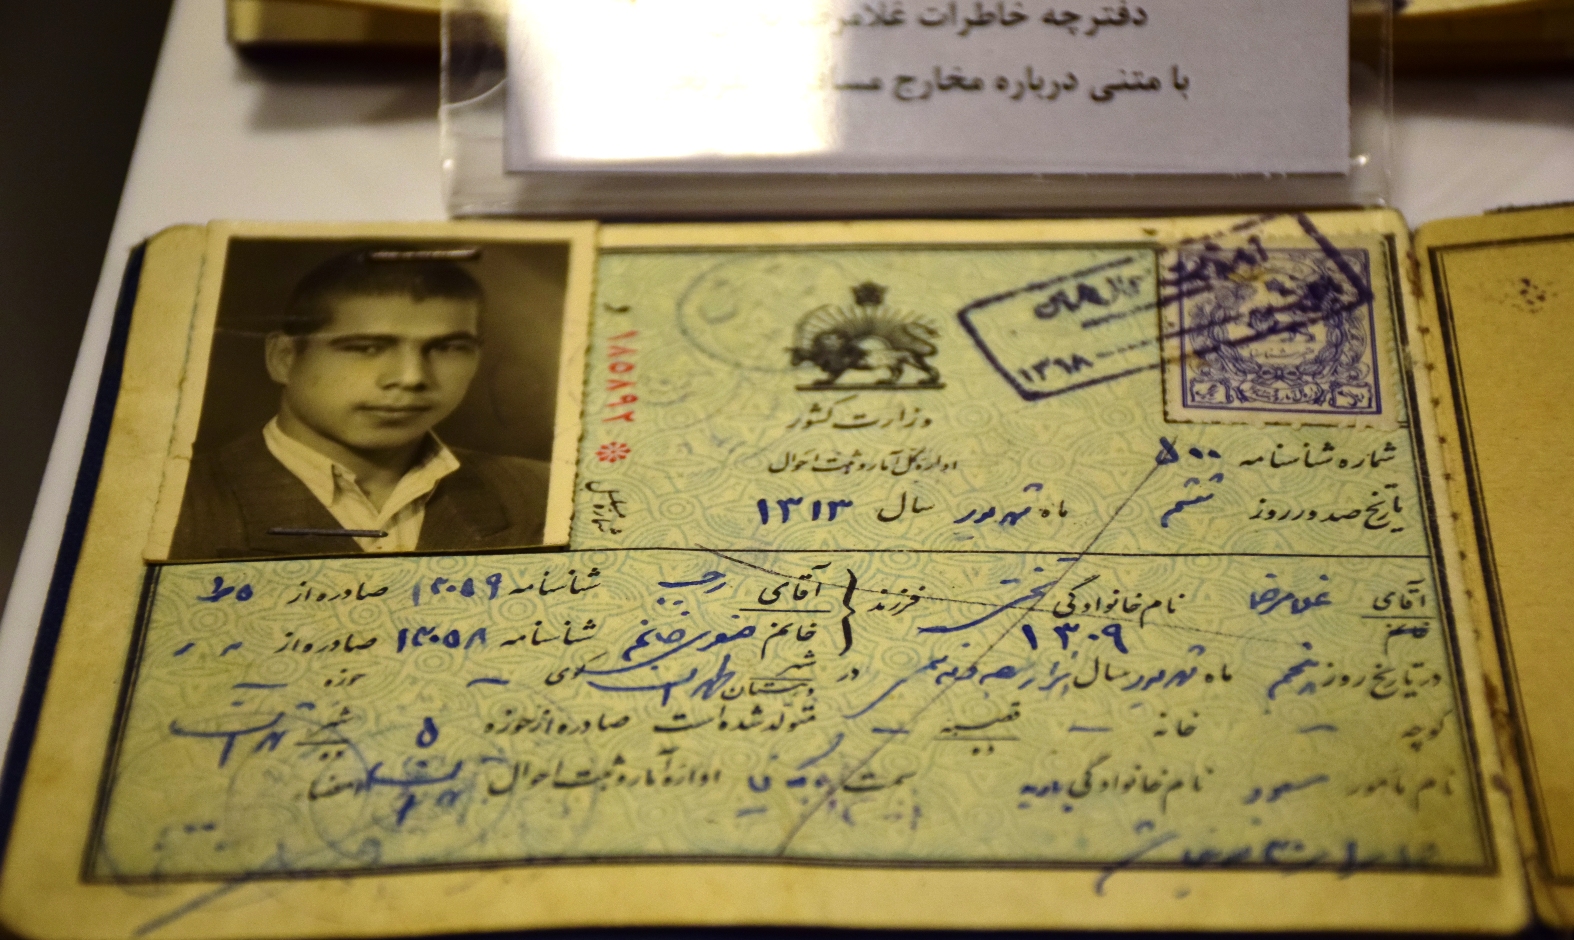 دفترچه خاطرات غلامرضا
با متنی درباره مخارج
۱۳۱۸
وزارت کشور
اداره کل آمار و ثبت احوال
شماره شناسنامه ۵۰۰
تاریخ صدور روز ششم ماه شهریور سال ۱۳۱۳
آقای غلامرضا نام خانوادگی تختی فرزند آقای رجب شناسنامه ۱۳۰۵۹ صادره از ۵ ط
خانم ۱۳۰۹ خانم صغری خانم شناسنامه ۱۳۰۵۸ صادره از " "
در تاریخ روز پنجم ماه شهریور سال هزار سیصد و نه شمسی در شهر دبستان طهران کوی حوزه
کوچه خانه قصبه ده متولد شده است صادره از حوزه ۵ شهر ده تهران
نام مأمور مسعود نام خانوادگی سمت اداره آمار و ثبت احوال تهران امضاء